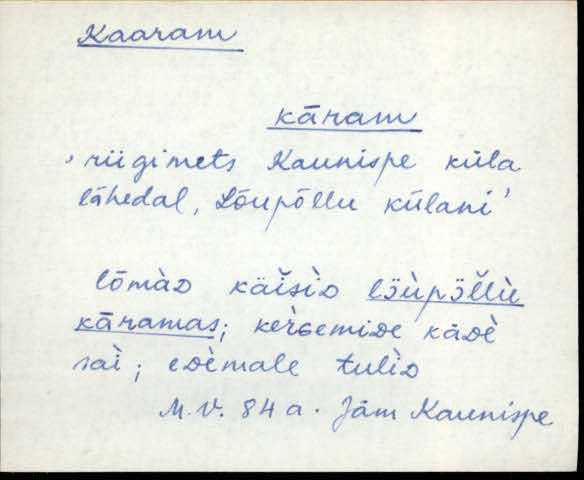 Kaaram
kāram
‚riigimets Kaunispe küla
lähedal, Lõupõllu külani’
lōmàD käĭsìD lɔ̈ùpɔ̈l̆lù
kāramas; keìsemiDe käDè
saì; eDèmale tulìD
M.V. 84 a. Jäm Kaunispe